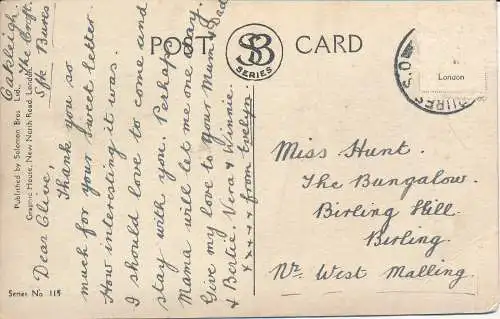 POST CARD
SB
SERIES
Oakleigh.
The Croft.
Sfk Bures
Dear Clive,
Thank you so
much for your sweet letter.
How interesting it was.
I should love to come and
stay with you. Perhaps
Mama will let me one day.
Give my love to your Mum & Dad
& Bertie. Vera & Winnie.
x x x x from Evelyn.
Miss Hunt.
The Bungalow.
Birling Hill,
Birling.
Nr. West Malling.
Published by Solomon Bros. Ltd.,
Graphic House, New North Road, London.
Series No. 115
London
BURES